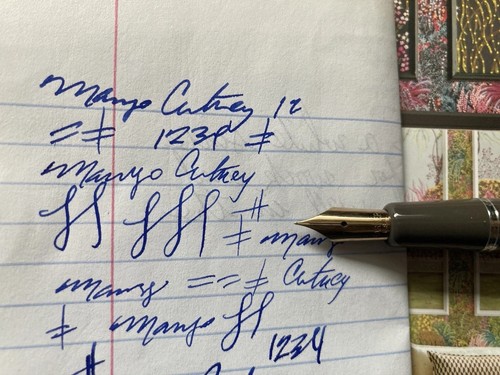 Mango Cutney 12
== ‡ 1234 ‡
Mango Cutney
ʃʃ ʃʃʃ #
‡ Mang
Mango == ‡ Cutney
‡ Mango ʃʃ
1234